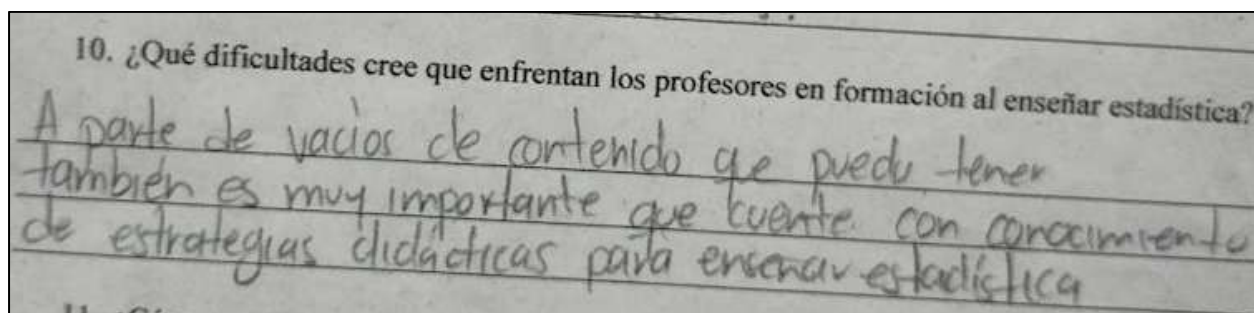 10. ¿Qué dificultades cree que enfrentan los profesores en formación al enseñar estadística?
A parte de vacios de contenido qe puedu tener
también es muy importante que cuente con conocimiento
de estrategias didácticas para ensenar estadística